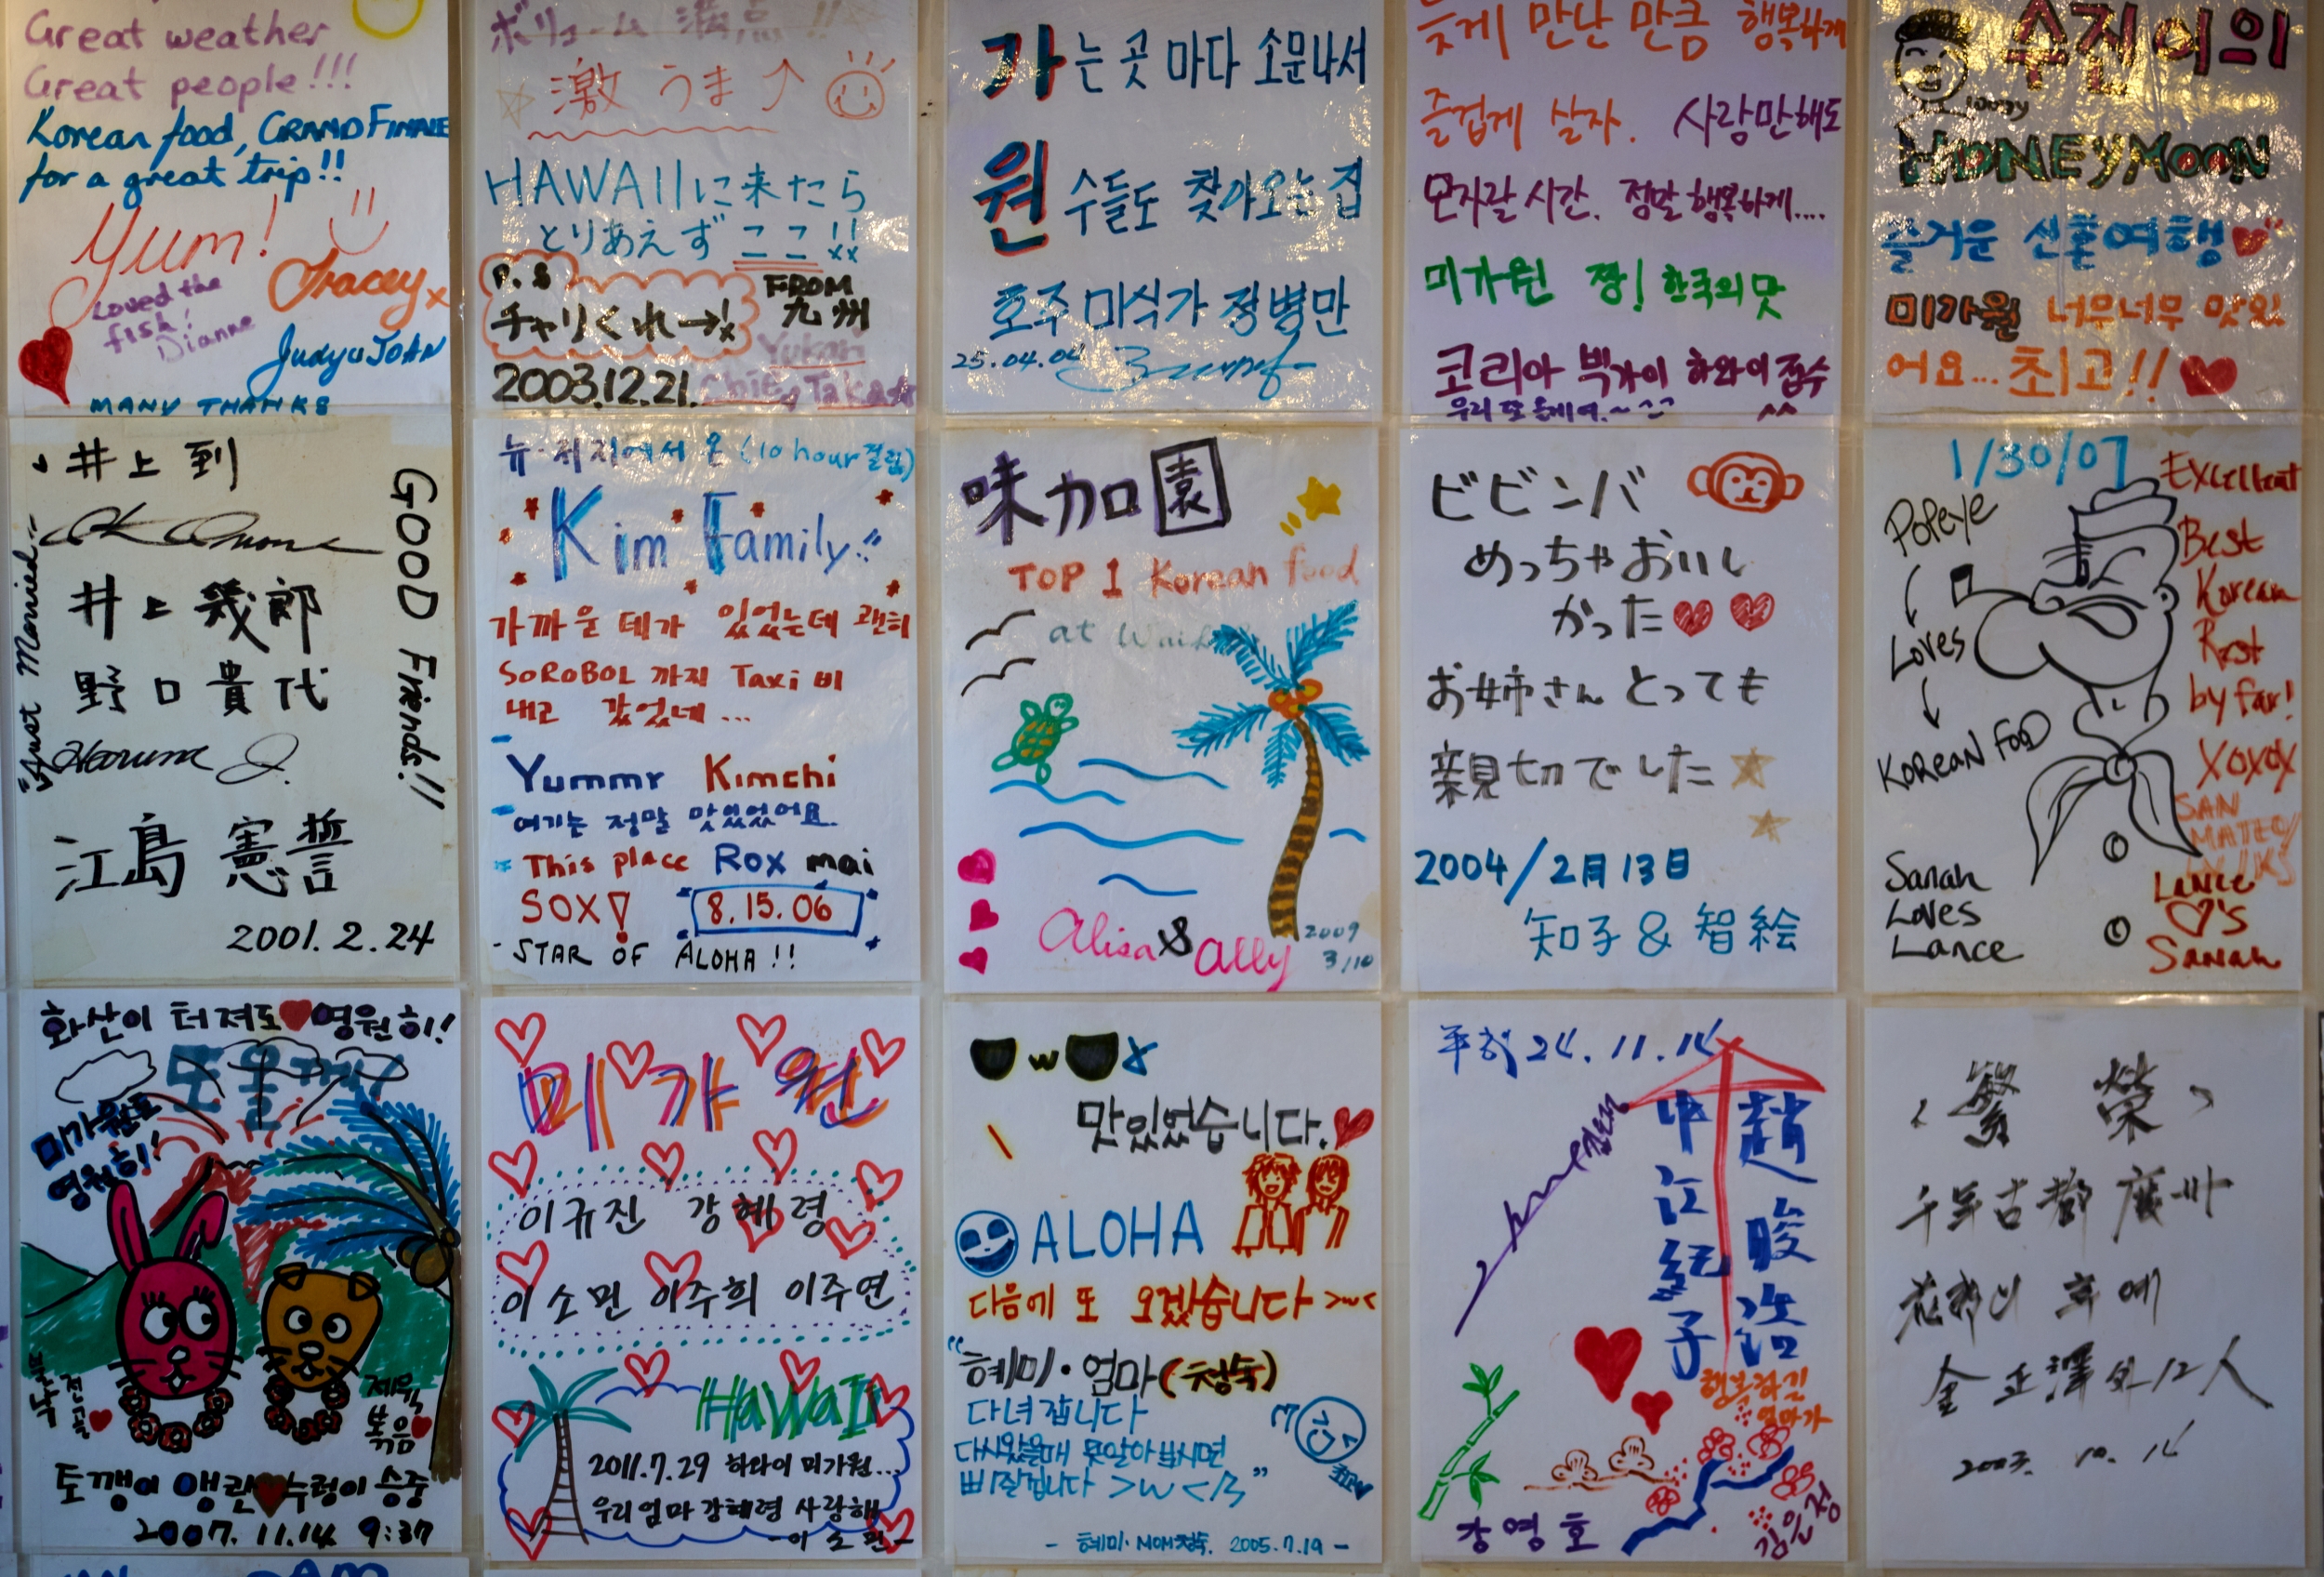 Great weather
Great people!!!
Korean food, GRAND FINALE
for a great trip!!
Yum!
Tracey x
Loved the
fish!
Dianne
Judy & JOAN
MANY THANKS
ボリューム 満点!!
激うま↑
HAWAIIに来たら
とりあえず ココ!!
P.S
チャリくれ→
FROM
九州
Yukari
2003.12.21. Chie, Taka
가는 곳 마다 소문나서
원수들도 찾아오는 집
호주 미식가 정병만
25.04.04
늦게 만난 만큼 행복하게
즐겁게 살자. 사랑만해도
모자랄 시간. 정말 행복하게....
미가원 짱! 한국의 맛
코리아 빅가이 하와이 접수
우리 또 올게여.~ ^^
수진이의
HONEYMOON
즐거운 신혼여행♥
미가원 너무너무 맛있
어요... 최고!! ♥
井上 到
井上 幾郎
野口 貴代
Haruna J.
江島 憲誓
"Just Married"
GOOD Friends!!
2001.2.24
뉴저지에서 온 (10 hour 걸림)
Kim Family!!
가까운 데가 있었는데 괜히
SOROBOL 까지 Taxi 비
내고 갔었네...
Yummy Kimchi
여기는 정말 맛있었어요.
This place Rox mai
SOX!
8.15.06
STAR OF ALOHA!!
味加園
TOP 1 Korean food
at Waikiki
Alisa & Ally
2009
3/10
ビビンバ
めっちゃおいし
かった♥♥
お姉さん とっても
親切でした☆
2004/2月13日
知子 & 智絵
1/30/07
Popeye
Loves
KOREAN FOOD
Excellent
Best
Korean
Rest
by far!
XOXOX
SAN
MATEO
Sanah
Loves
Lance
Lance
♡'s
Sanah
화산이 터져도♥영원히!
또올께
미가원도
영원히!
전골
제육
볶음
토깽이 앵란♥수렁이 승중
2007. 11.14 9:37
미가원
이규진 강혜령
이소민 이주희 이주연
HaWaII
2011.7.29 하와이 미가원...
우리엄마 강혜령 사랑해
-이소민-
맛있었습니다.♥
ALOHA
다음에 또 오겠습니다 >w<
"혜미·엄마(정숙)
다녀갑니다
다시왔을때 못알아보시면
삐질겁니다 >w</3"
- 혜미·MOM정숙. 2005.7.19 -
平成24.11.14
趙 晙浩
中江 紀子
행복하길
엄마가
강영호
김은정
繁榮
千年古都 廣州
花都
金正澤 外12人
2003. 10. 14